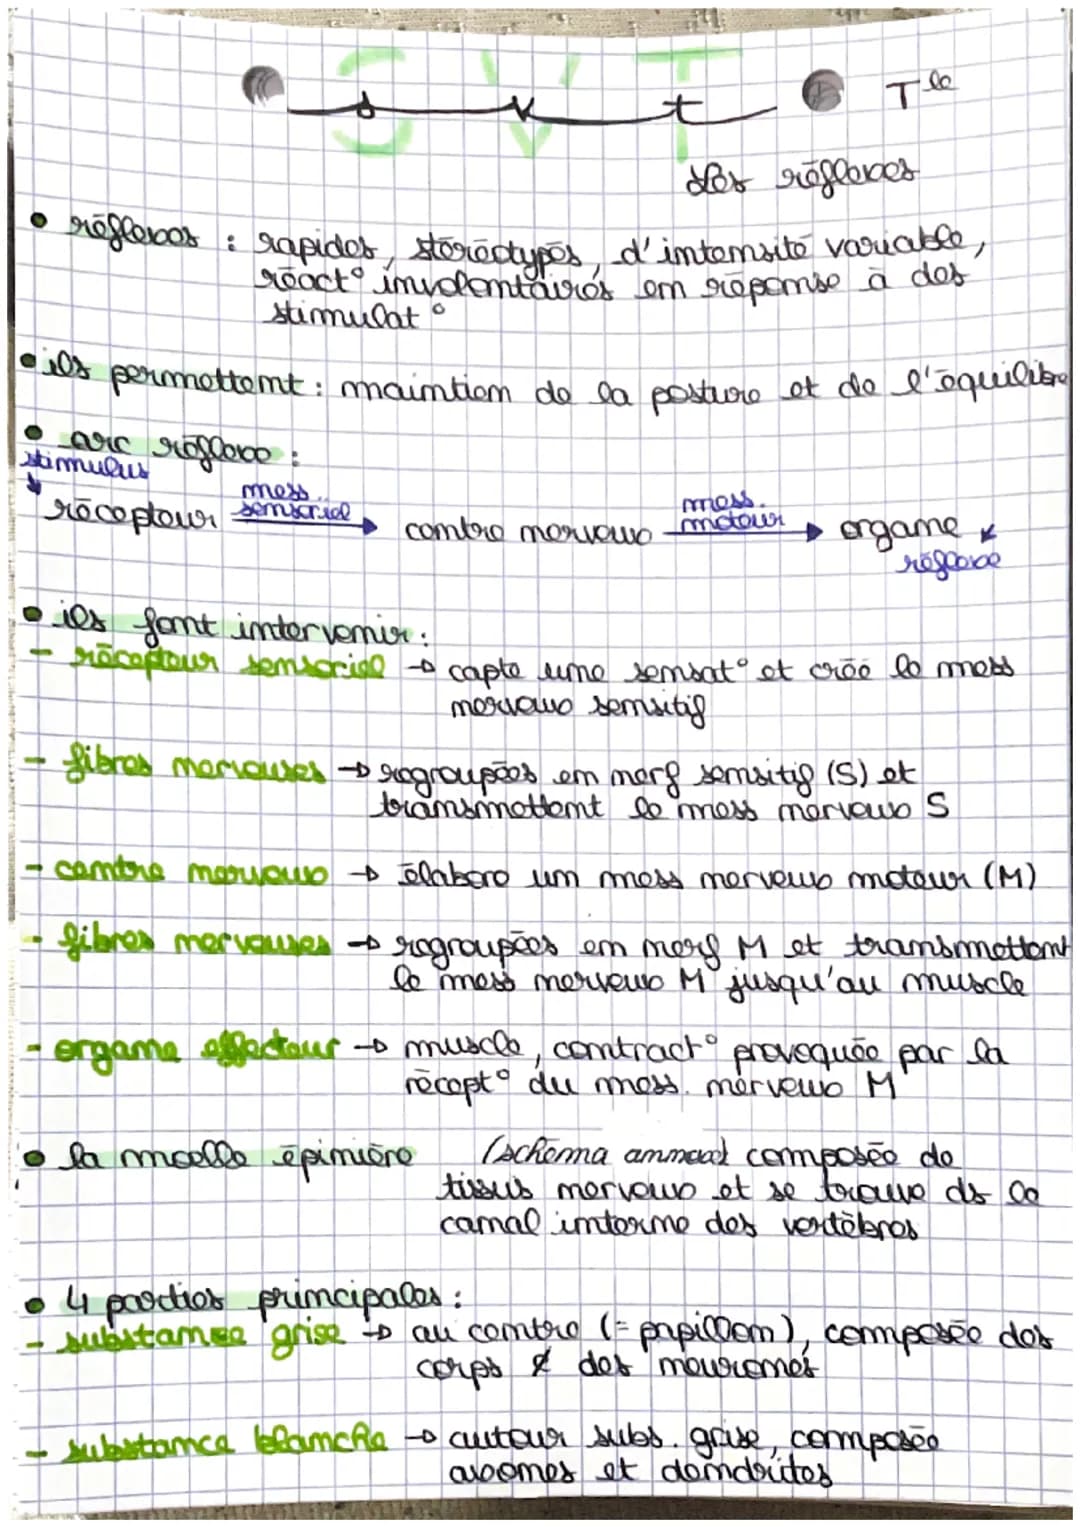 SVT
svt
Tle
des réflexes
• réflexes : rapides, stéréotypés, d'intensité variable,
réact° involontaires en réponse à des
stimulat°
• ils permettent : maintien de la posture et de l'équilibre
• arc réflexe :
stimulus
récepteur mess. sensoriel → centre nerveux mess. moteur → organe
réflexe
• ils font intervenir :
- récepteur sensoriel → capte une sensat° et crée le mess
nerveux sensitif
- fibres nerveuses → regroupées en nerf sensitif (S) et
transmettent le mess nerveux S
- centre nerveux → élabore un mess nerveux moteur (M)
- fibres nerveuses → regroupées en nerf M et transmettent
le mess nerveux M jusqu'au muscle
- organe effecteur → muscle, contract° provoquée par la
récept° du mess. nerveux M
• la moelle épinière (schéma annexe) composée de
tissus nerveux et se trouve ds le
canal interne des vertèbres
• 4 parties principales :
- substance grise → au centre (= papillon), composée des
corps ¢ des neurones
- substance blanche → autour subs. grise, composée
axones et dendrites